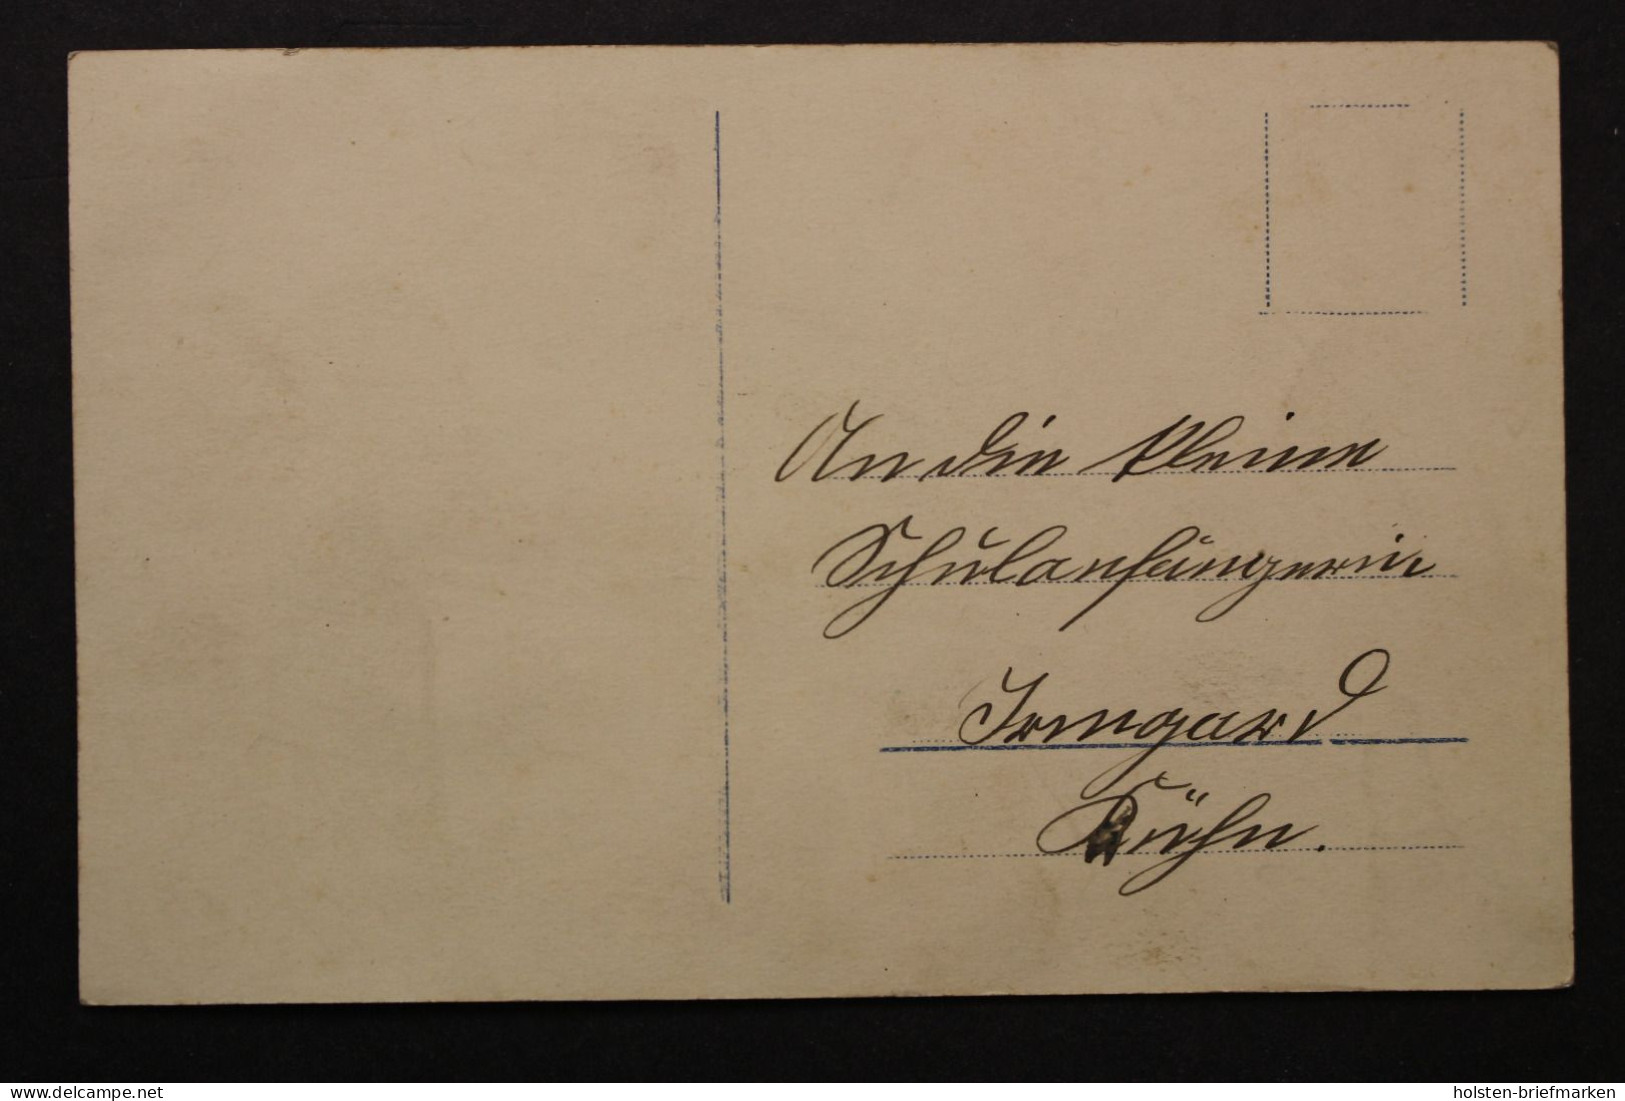 An die kleine
Schulanfängerin
Irmgard
Kühn.
www.delcampe.net
holsten-briefmarken